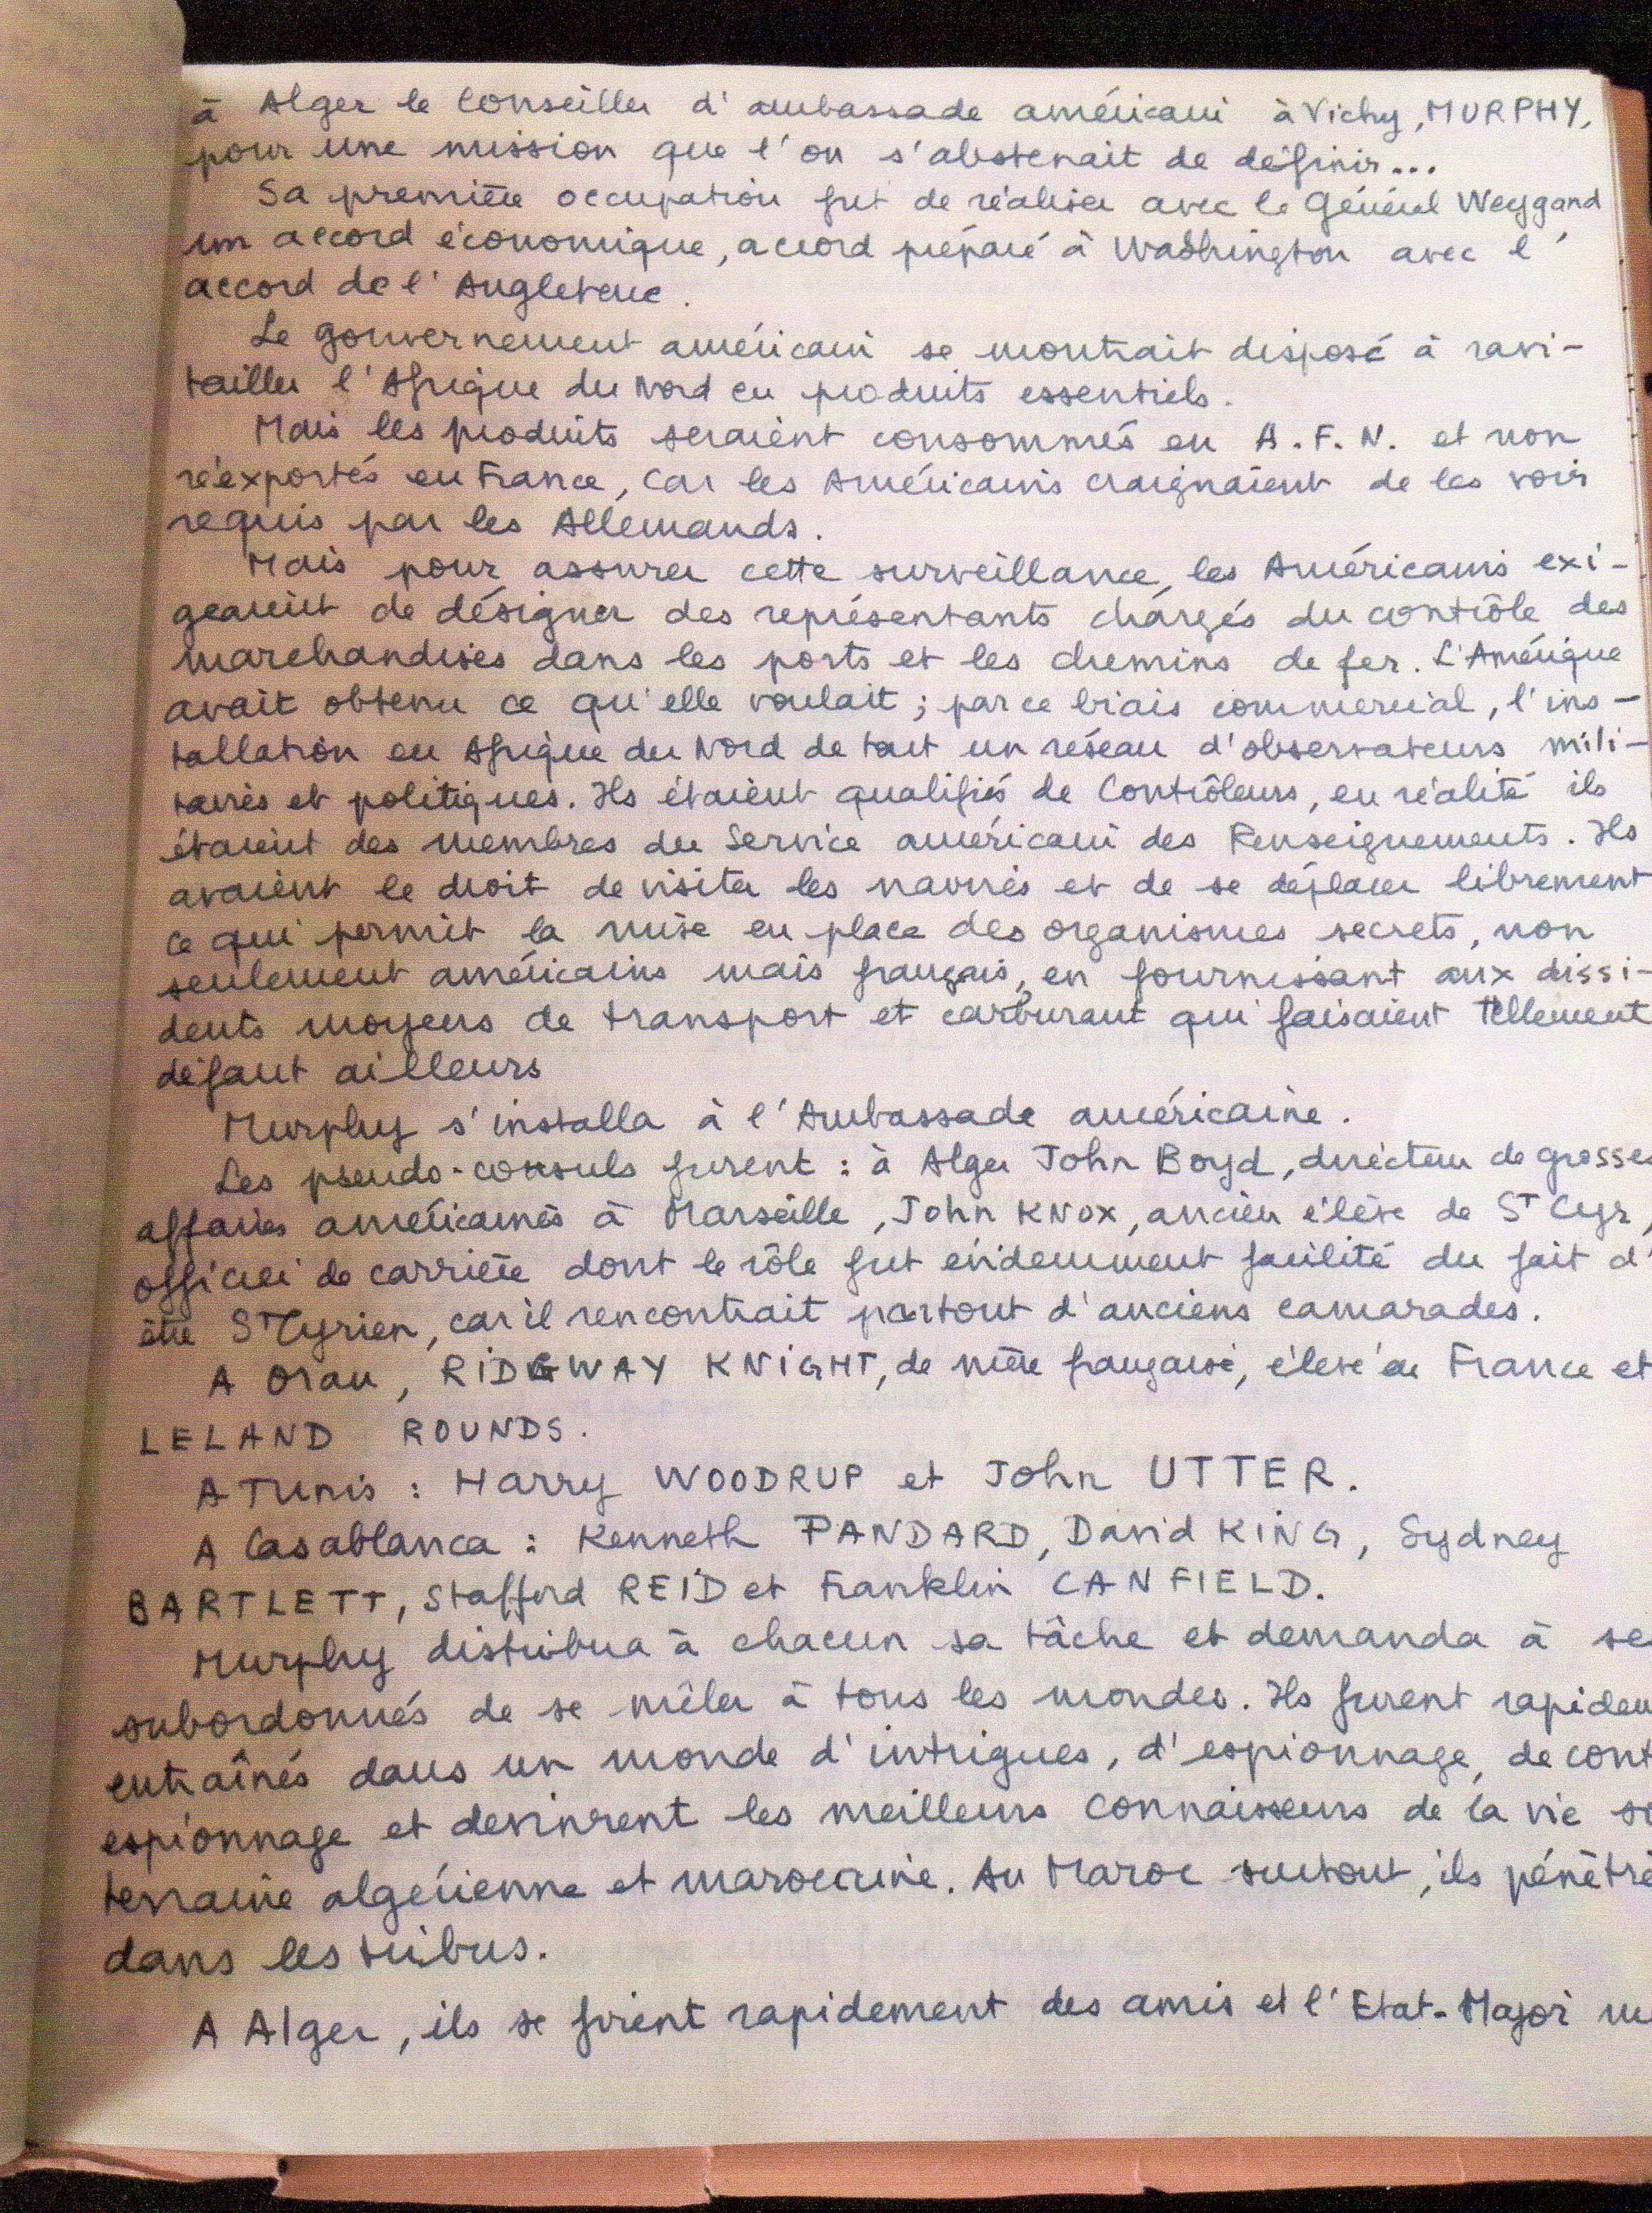 à Alger le Conseiller d'ambassade américain à Vichy, MURPHY,
pour une mission que l'on s'abstenait de définir...
Sa première occupation fut de réaliser avec le Général Weygand
un accord économique, accord préparé à Washington avec l'
accord de l'Angleterre.
Le gouvernement américain se montrait disposé à ravi-
tailler l'Afrique du Nord en produits essentiels.
Mais les produits seraient consommés en A.F.N. et non
réexportés en France, car les Américains craignaient de les voir
requis par les Allemands.
Mais pour assurer cette surveillance, les Américains exi-
geaient de désigner des représentants chargés du contrôle des
marchandises dans les ports et les chemins de fer. L'Amérique
avait obtenu ce qu'elle voulait ; par ce biais commercial, l'ins-
tallation en Afrique du Nord de tout un réseau d'observateurs mili-
taires et politiques. Ils étaient qualifiés de Contrôleurs, en réalité ils
étaient des membres du Service américain des Renseignements. Ils
avaient le droit de visiter les navires et de se déplacer librement
ce qui permit la mise en place des organismes secrets, non
seulement américains mais français, en fournissant aux dissi-
dents moyens de transport et carburant qui faisaient tellement
défaut ailleurs
Murphy s'installa à l'Ambassade américaine.
Les pseudo-consuls furent : à Alger John Boyd, directeur de grosses
affaires américaines à Marseille, John KNOX, ancien élève de St Cyr,
officier de carrière dont le rôle fut évidemment facilité du fait d'
être St Cyrien, car il rencontrait partout d'anciens camarades.
A Oran, RIDGWAY KNIGHT, de mère française, élevé en France et
LELAND ROUNDS.
A Tunis : Harry WOODRUP et John UTTER.
A Casablanca : Kenneth PANDARD, David KING, Sydney
BARTLETT, Stafford REID et Franklin CANFIELD.
Murphy distribua à chacun sa tâche et demanda à se
subordonnés de se mêler à tous les mondes. Ils furent rapidem
entraînés dans un monde d'intrigues, d'espionnage, de cont
espionnage et devinrent les meilleurs connaisseurs de la vie so
terraine algérienne et marocaine. Au Maroc surtout, ils pénétrè
dans les tribus.
A Alger, ils se firent rapidement des amis et l'Etat-Major